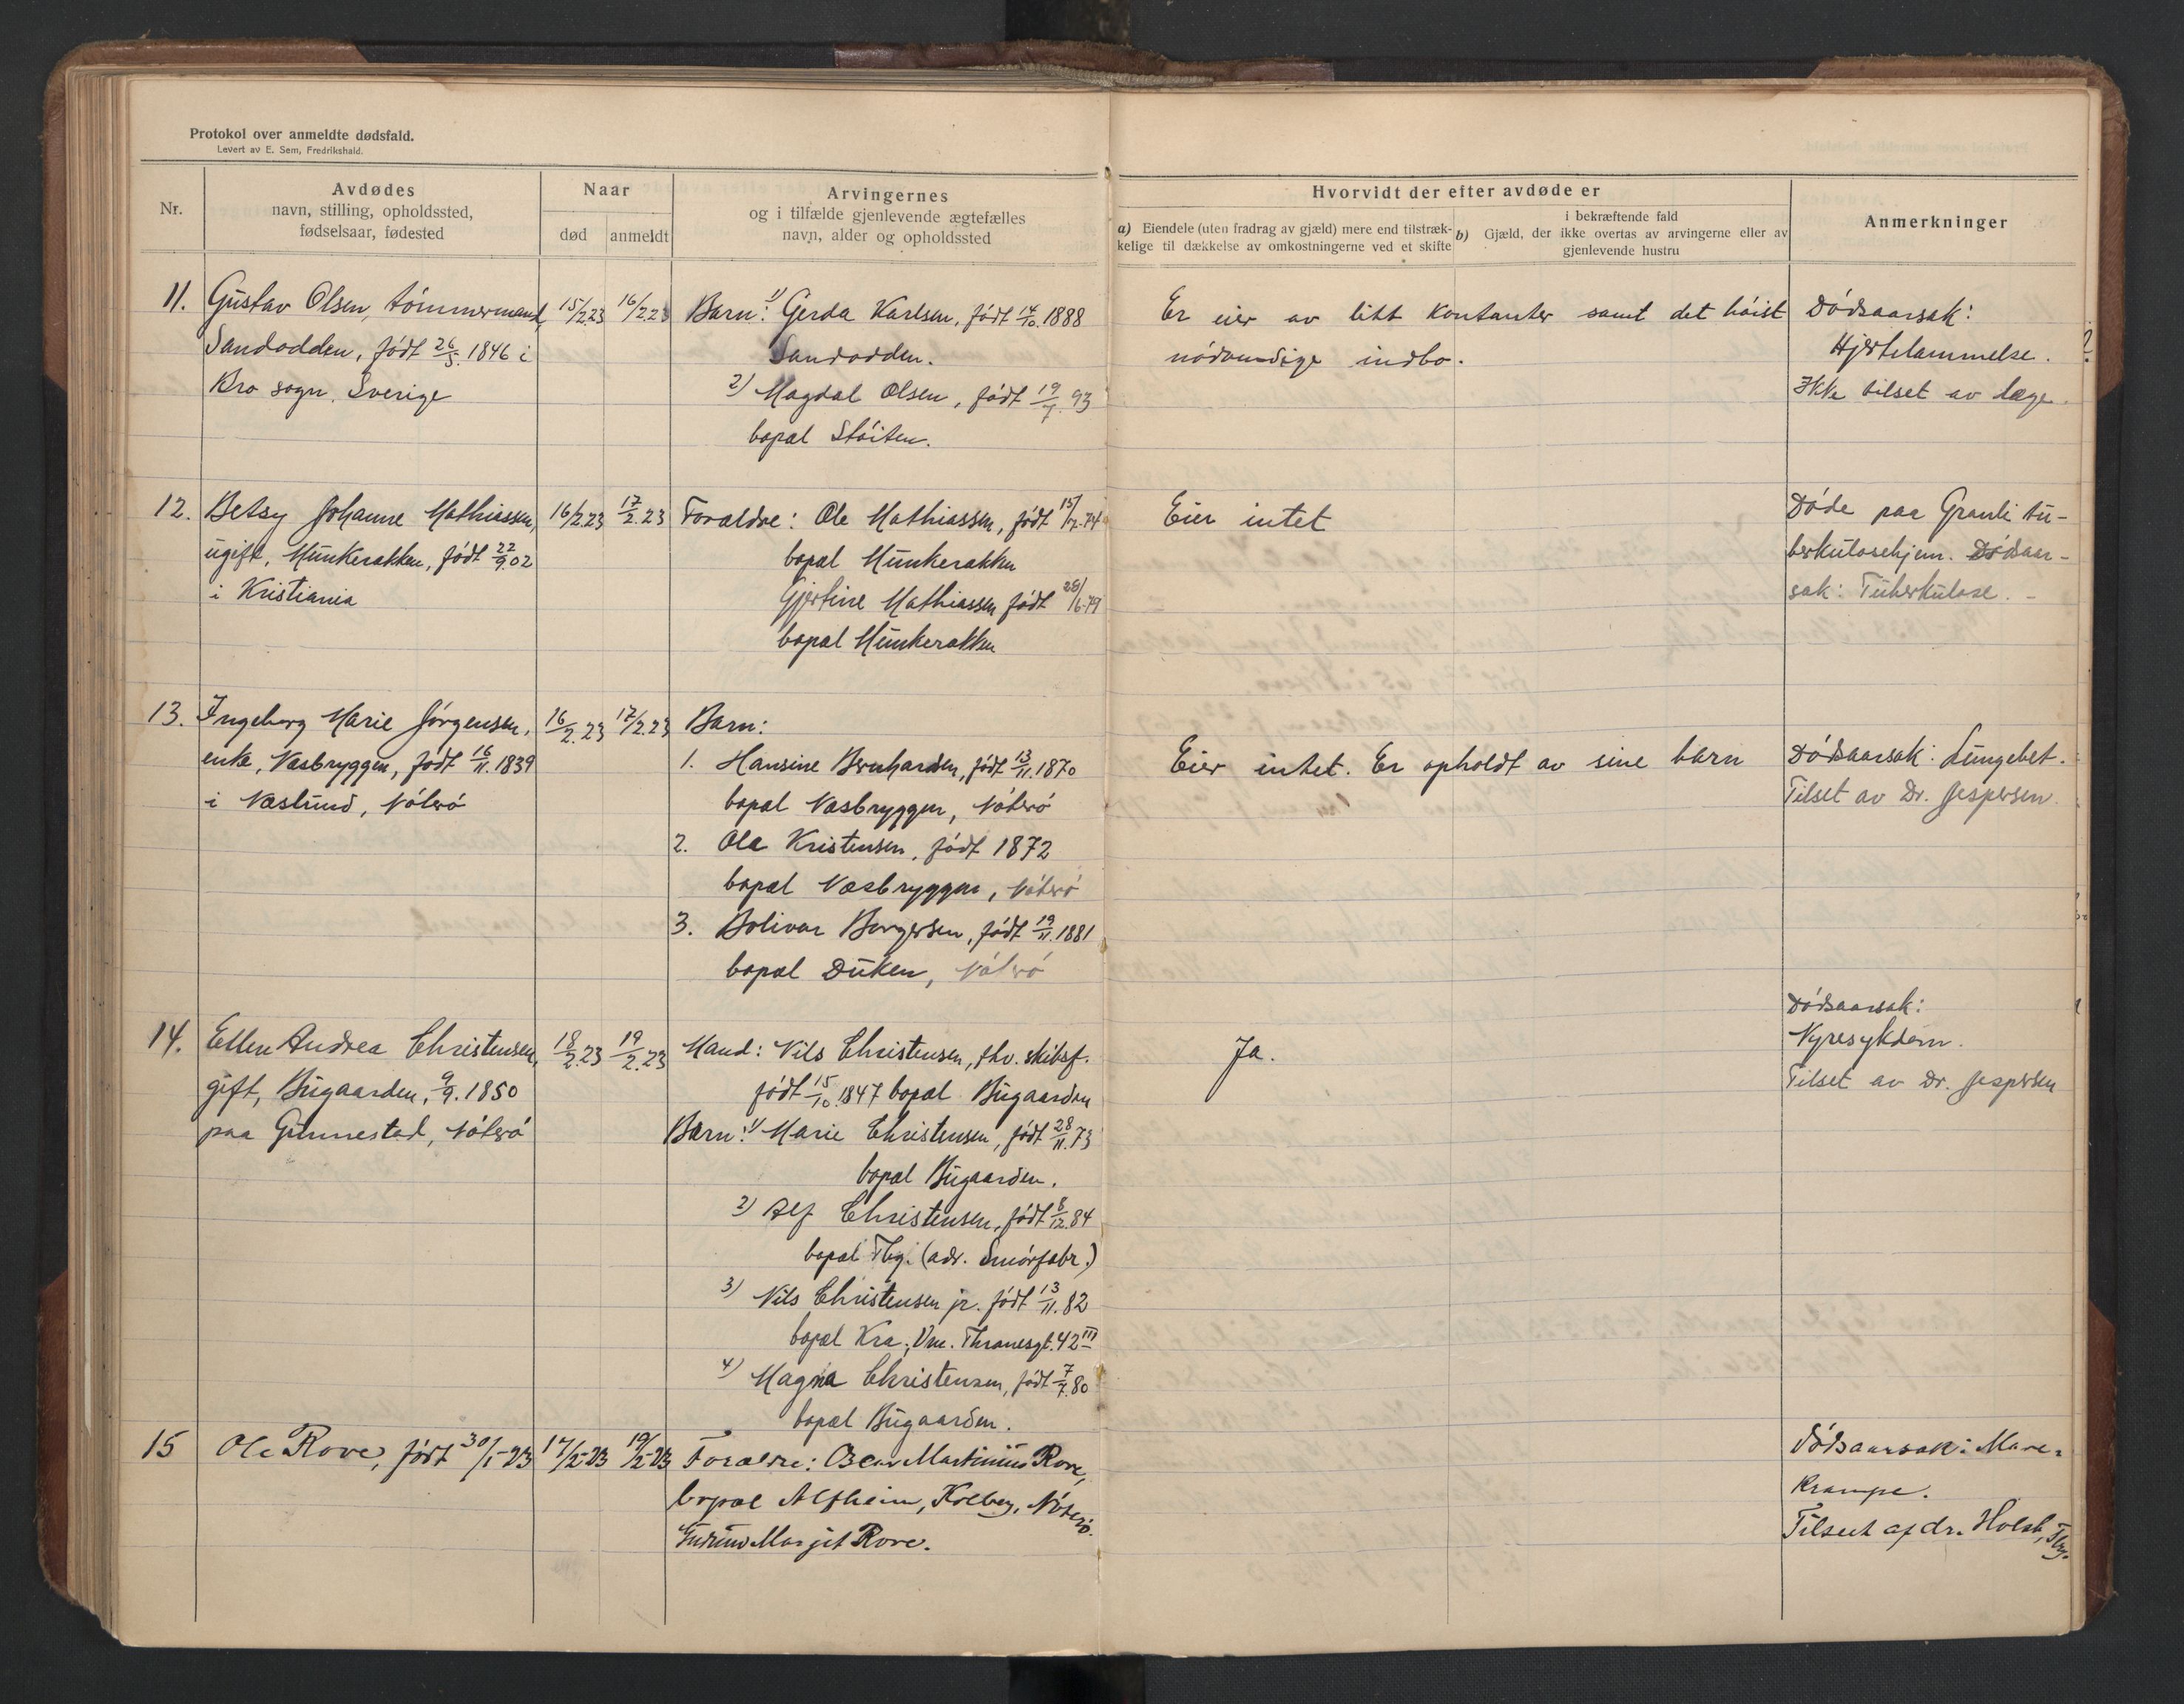 Protokol over anmeldte dødsfald.
Levert av E. Sem, Fredrikshald.
Nr.
Avdødes
navn, stilling, opholdssted,
fødselsaar, fødested
Naar
død
anmeldt
Arvingernes
og i tilfælde gjenlevende ægtefælles
navn, alder og opholdssted
Hvorvidt der efter avdøde er
a) Eiendele (uten fradrag av gjæld) mere end tilstræk-
kelige til dækkelse av omkostningerne ved et skifte
i bekræftende fald
b) Gjæld, der ikke overtas av arvingerne eller av
gjenlevende hustru
Anmerkninger
11. Gustav Olsen, tømmermand,
Sandodden, født 26/5. 1846 i
Bro sogn, Sverige
15/2.23
16/2.23
Barn: 1) Gerda Karlsen, født 14/10. 1888
Sandodden.
2) Magdal Olsen, født 19/7. 93
bopæl Støiten.
Er eier av litt kontanter samt det høist
nødvendige indbo.
Dødsaarsak:
Hjertelammelse.
Ikke tilset av læge.
12. Betsy Johanne Mathiassen,
ugift, Munkerakken, født 22/9.02
i Kristiania
16/2.23
17/2.23
Forældre: Ole Mathiassen, født 15/7.74
bopæl Munkerakken
Gjertine Mathiassen født 28/6.79
bopæl Munkerakken
Eier intet
Døde paa Granli tu-
berkulosehjem. Dødsaar-
sak: Tuberkulose. -
13. Ingeborg Marie Jørgensen,
enke, Næsbryggen, født 16/11. 1839
i Næslund, Nøterø
16/2.23
17/2.23
Barn:
1. Hansine Bernhardsen, født 13/11. 1870
bopæl Næsbryggen, Nøterø
2. Ole Kristensen, født 1872
bopæl Næsbryggen, Nøterø
3. Bolivar Borgersen, født 19/11. 1881
bopæl Duken, Nøterø
Eier intet. Er opholdt av sine barn
Dødsaarsak: Lungebet.
Tilset av Dr. Jespersen.
14. Ellen Andrea Christensen,
gift, Bugaarden, 9/9. 1850
paa Gunnestad, Nøterø
18/2.23
19/2.23
Mand: Nils Christensen, fhv. skibsf.
født 15/10. 1847 bopæl Bugaarden
Barn: 1) Marie Christensen, født 28/11. 73
bopæl Bugaarden.
2) Alf Christensen, født 8/12. 84
bopæl Tbg. (adr. Smørfabr.)
3) Nils Christensen jr. født 13/11. 82
bopæl Kra., Vm. Thranesgt. 42 III
4) Magna Christensen, født 7/7. 80
bopæl Bugaarden.
Ja.
Dødsaarsak:
Nyresykdom.
Tilset av Dr. Jespersen
15 Ole Rove, født 30/1-23
17/2-23
19/2-23
Forældre: Oscar Martinius Rove,
bopæl Alfheim, Kolberg, Nøterø.
Gudrun Margit Rove.
Dødsaarsak: Mave-
krampe.
Tilseet af dr. Holst, Tbg.